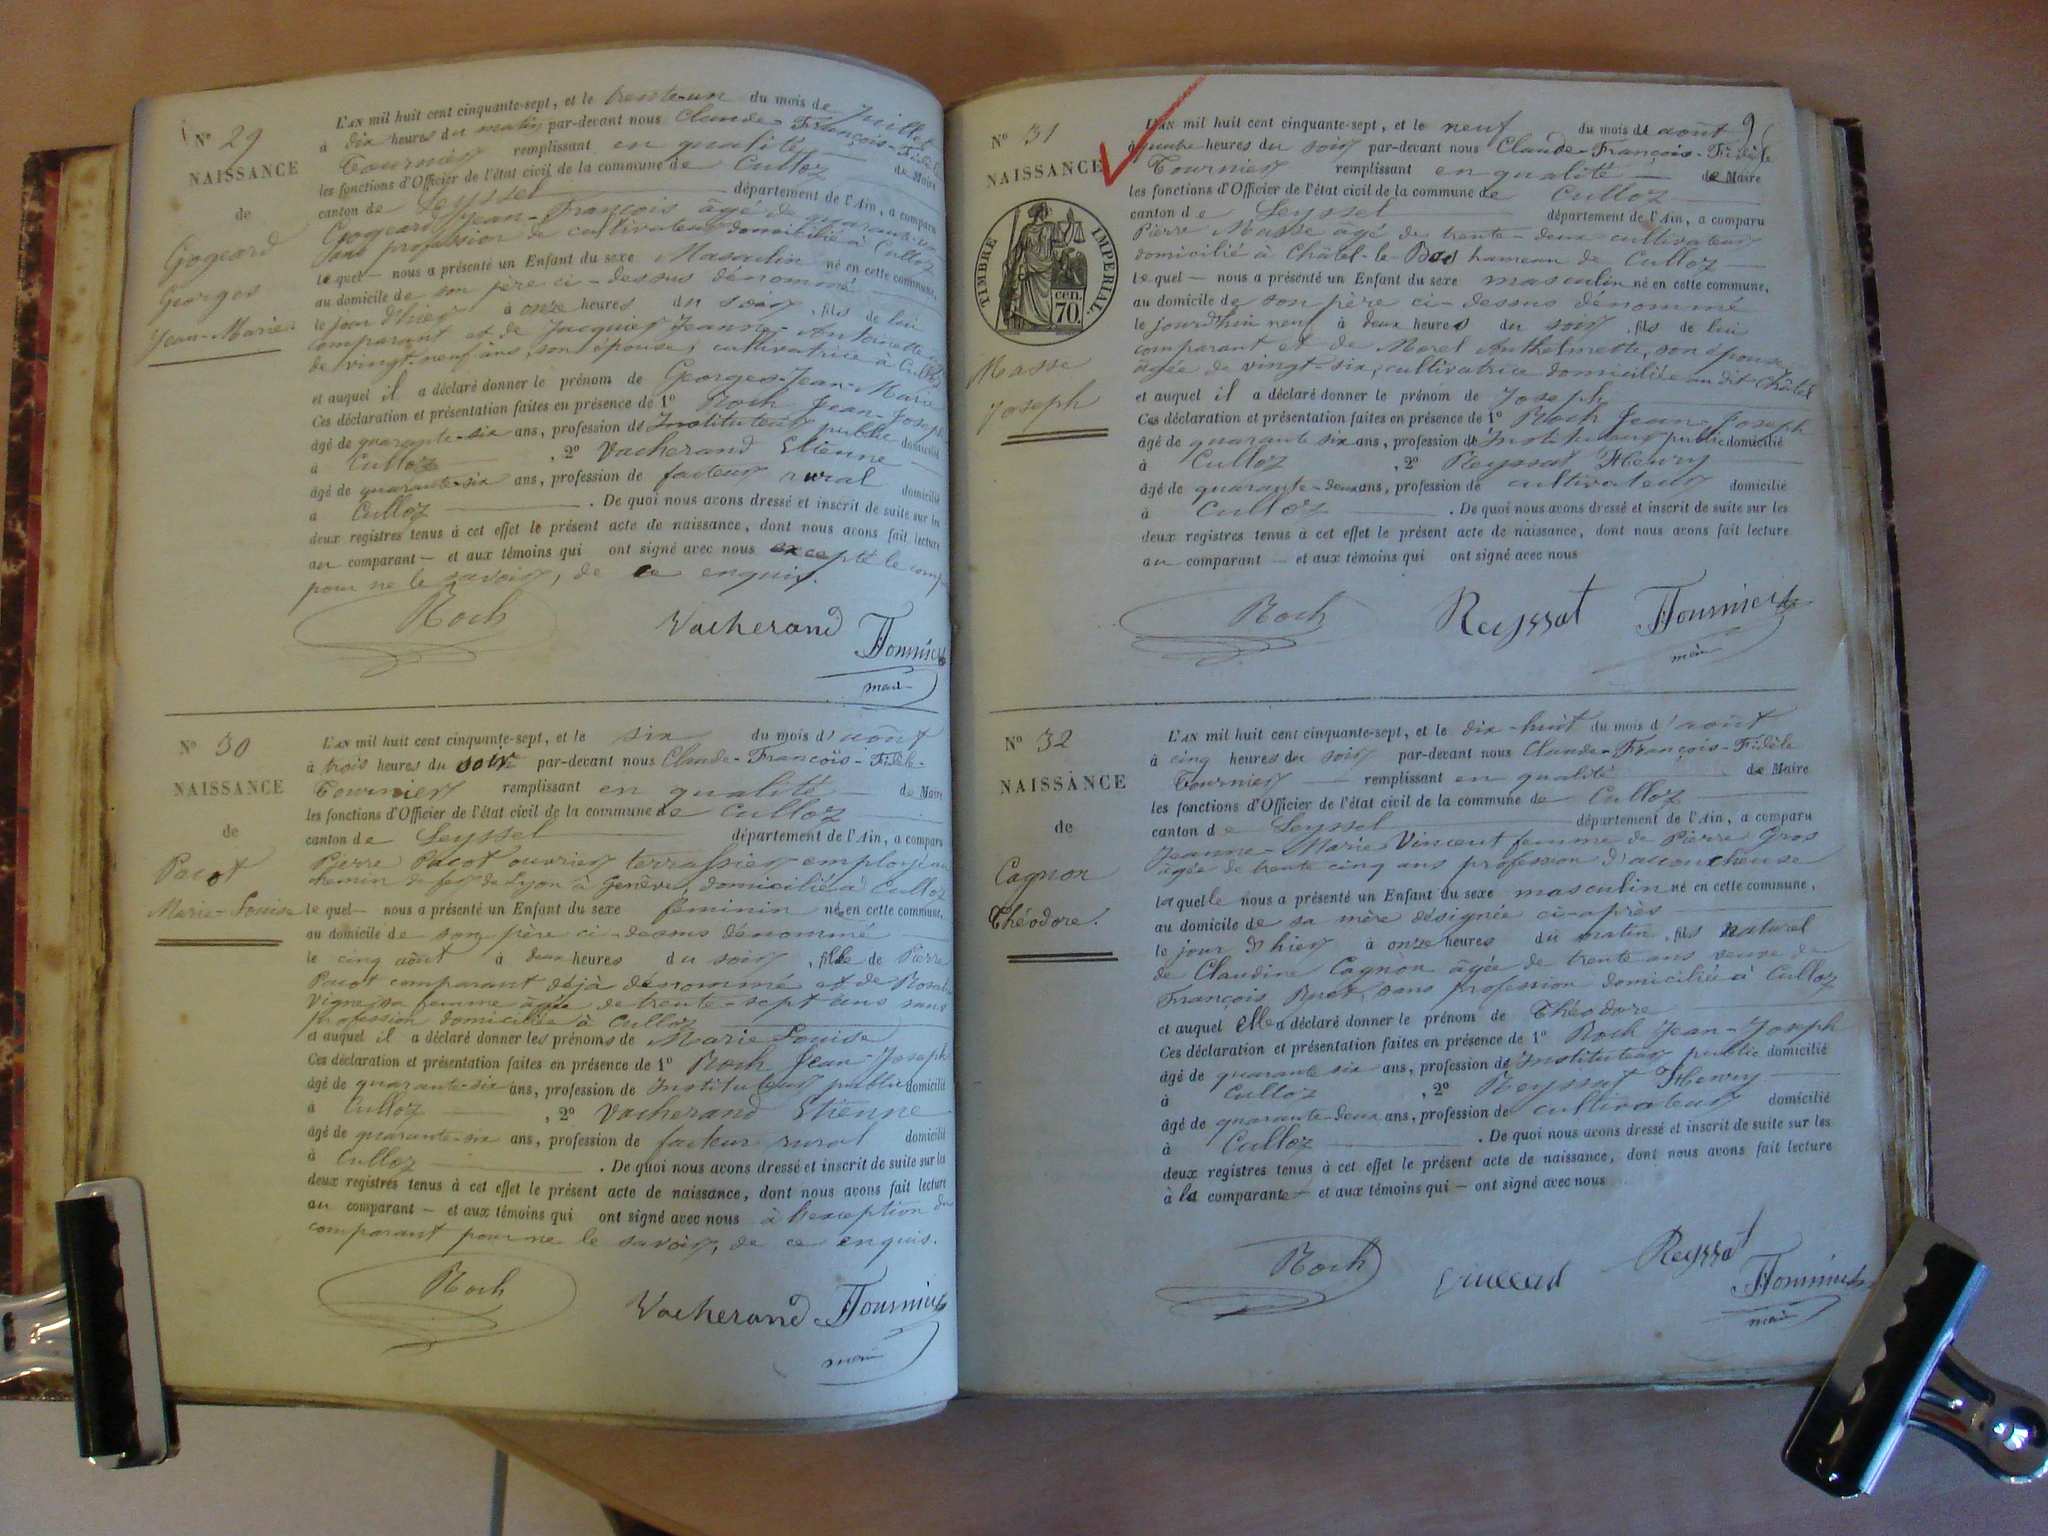 N° 29
NAISSANCE
de
Gogeard
Georges
Jean-Marie
L'AN mil huit cent cinquante-sept, et le trente-un du mois de Juillet
à dix heures du matin par-devant nous Claude-François-Fidèle
Tournier remplissant en qualité de Maire
les fonctions d'Officier de l'état civil de la commune de Culloz
canton de Seyssel département de l'Ain, a comparu
Gogeard Jean-François âgé de quarante-un
ans profession de cultivateur domicilié à Culloz
lequel — nous a présenté un Enfant du sexe Masculin né en cette commune,
au domicile de son père ci-dessus dénommé
le jour d'hier à onze heures du soir, fils de lui
comparant et de Jacquier Jeanne-Antoinette
de vingt-neuf ans, son épouse, cultivatrice à Culloz
et auquel il a déclaré donner le prénom de Georges-Jean-Marie
Ces déclaration et présentation faites en présence de 1° Roch Jean-Joseph
âgé de quarante-six ans, profession d'Instituteur public domicilié
à Culloz, 2° Vacherand Etienne
âgé de quarante-six ans, profession de facteur rural domicilié
à Culloz. De quoi nous avons dressé et inscrit de suite sur les
deux registres tenus à cet effet le présent acte de naissance, dont nous avons fait lecture
au comparant — et aux témoins qui ont signé avec nous excepté le comp-
pour ne le savoir, de ce enquis.
Roch Vacherand Tournier
maire
N° 30
NAISSANCE
de
Pacot
Marie-Louise
L'AN mil huit cent cinquante-sept, et le six du mois d'août
à trois heures du soir par-devant nous Claude-François-Fidèle-
Tournier remplissant en qualité — de Maire
les fonctions d'Officier de l'état civil de la commune de Culloz
canton de Seyssel département de l'Ain, a comparu
Pierre Pacot ouvrier terrassier employé au
chemin de fer de Lyon à Genève, domicilié à Culloz
lequel — nous a présenté un Enfant du sexe féminin née en cette commune,
au domicile de son père ci-dessus dénommé
le cinq août à deux heures du soir, fille de Pierre
Pacot comparant déjà dénommé et de Rosalie
Vigne sa femme âgée de trente-sept ans sans
profession domiciliée à Culloz
et auquel il a déclaré donner les prénoms de Marie Louise
Ces déclaration et présentation faites en présence de 1° Roch Jean-Joseph
âgé de quarante-six ans, profession de Instituteur public domicilié
à Culloz, 2° Vacherand Etienne
âgé de quarante-six ans, profession de facteur rural domicilié
à Culloz. De quoi nous avons dressé et inscrit de suite sur les
deux registres tenus à cet effet le présent acte de naissance, dont nous avons fait lecture
au comparant — et aux témoins qui ont signé avec nous à l'exception du
comparant pour ne le savoir, de ce enquis.
Roch Vacherand Tournier
maire
N° 31
NAISSANCE
TIMBRE IMPERIAL
cen.
70.
Masse
Joseph
9
L'AN mil huit cent cinquante-sept, et le neuf du mois d'août
à quatre heures du soir par-devant nous Claude-François-Fidèle
Tournier remplissant en qualité — de Maire
les fonctions d'Officier de l'état civil de la commune de Culloz
canton de Seyssel département de l'Ain, a comparu
Pierre Masse âgé de trente-deux cultivateur
domicilié à Châtel-le-Bas hameau de Culloz
lequel — nous a présenté un Enfant du sexe masculin né en cette commune,
au domicile de son père ci-dessus dénommé
le jourd'hui neuf à deux heures du soir, fils de lui
comparant et de Morel Anthelmette, son épouse
âgée de vingt-six, cultivatrice domiciliée au dit Châtel
et auquel il a déclaré donner le prénom de Joseph
Ces déclaration et présentation faites en présence de 1° Roch Jean Joseph
âgé de quarante six ans, profession d'Instituteur public domicilié
à Culloz, 2° Reyssat Henry
âgé de quarante-deux ans, profession de cultivateur domicilié
à Culloz. De quoi nous avons dressé et inscrit de suite sur les
deux registres tenus à cet effet le présent acte de naissance, dont nous avons fait lecture
au comparant — et aux témoins qui ont signé avec nous
Roch Reyssat Tournier
maire
N° 32
NAISSANCE
de
Cagnon
Théodore.
L'AN mil huit cent cinquante-sept, et le dix-huit du mois d'août
à cinq heures du soir par-devant nous Claude-François-Fidèle
Tournier — remplissant en qualité de Maire
les fonctions d'Officier de l'état civil de la commune de Culloz
canton de Seyssel département de l'Ain, a comparu
Jeanne-Marie Vincent femme de Pierre Gros
âgée de trente cinq ans profession d'acoucheuse
laquelle nous a présenté un Enfant du sexe masculin né en cette commune,
au domicile de sa mère désignée ci-après
le jour d'hier à onze heures du matin, fils naturel
de Claudine Cagnon âgée de trente ans veuve de
François, sans profession domiciliée à Culloz
et auquel elle a déclaré donner le prénom de Théodore
Ces déclaration et présentation faites en présence de 1° Roch Jean-Joseph
âgé de quarante six ans, profession d'Instituteur public domicilié
à Culloz, 2° Reyssat Henry
âgé de quarante-deux ans, profession de cultivateur domicilié
à Culloz. De quoi nous avons dressé et inscrit de suite sur les
deux registres tenus à cet effet le présent acte de naissance, dont nous avons fait lecture
à la comparante — et aux témoins qui — ont signé avec nous
Roch Vincent Reyssat Tournier
maire